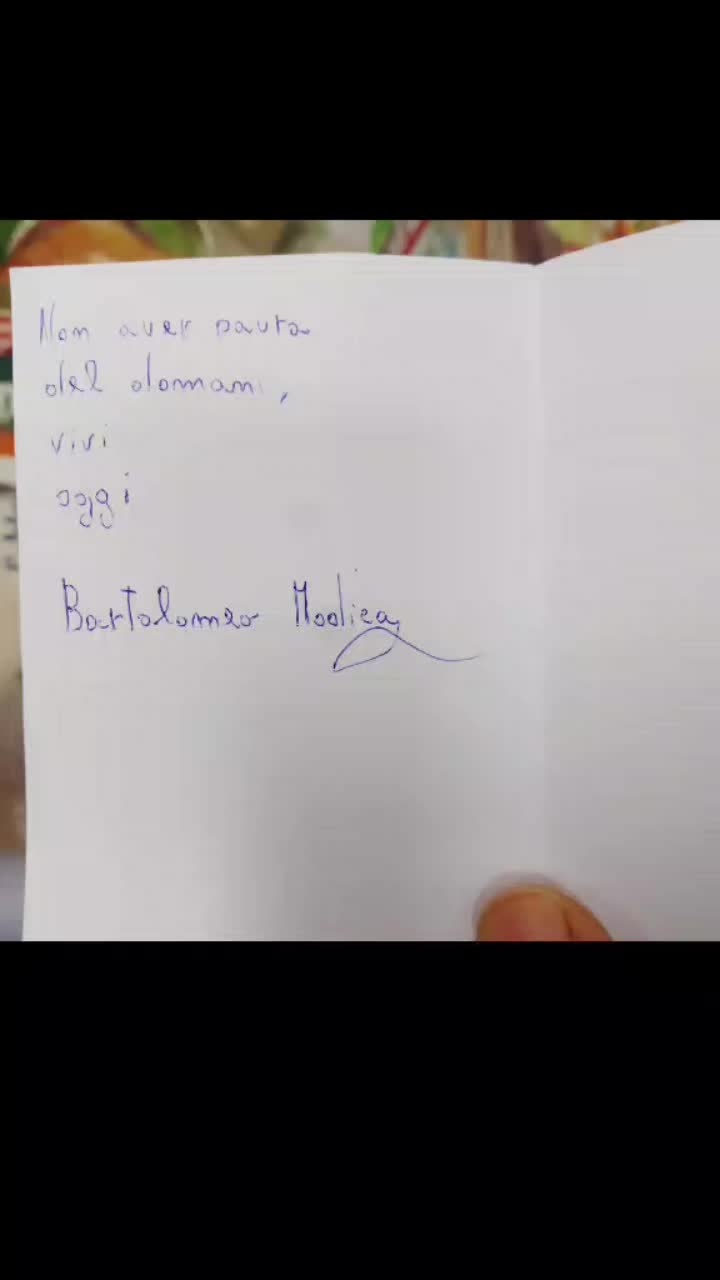 Non aver paura
del domani,
vivi
oggi
Bartolomeo Modica